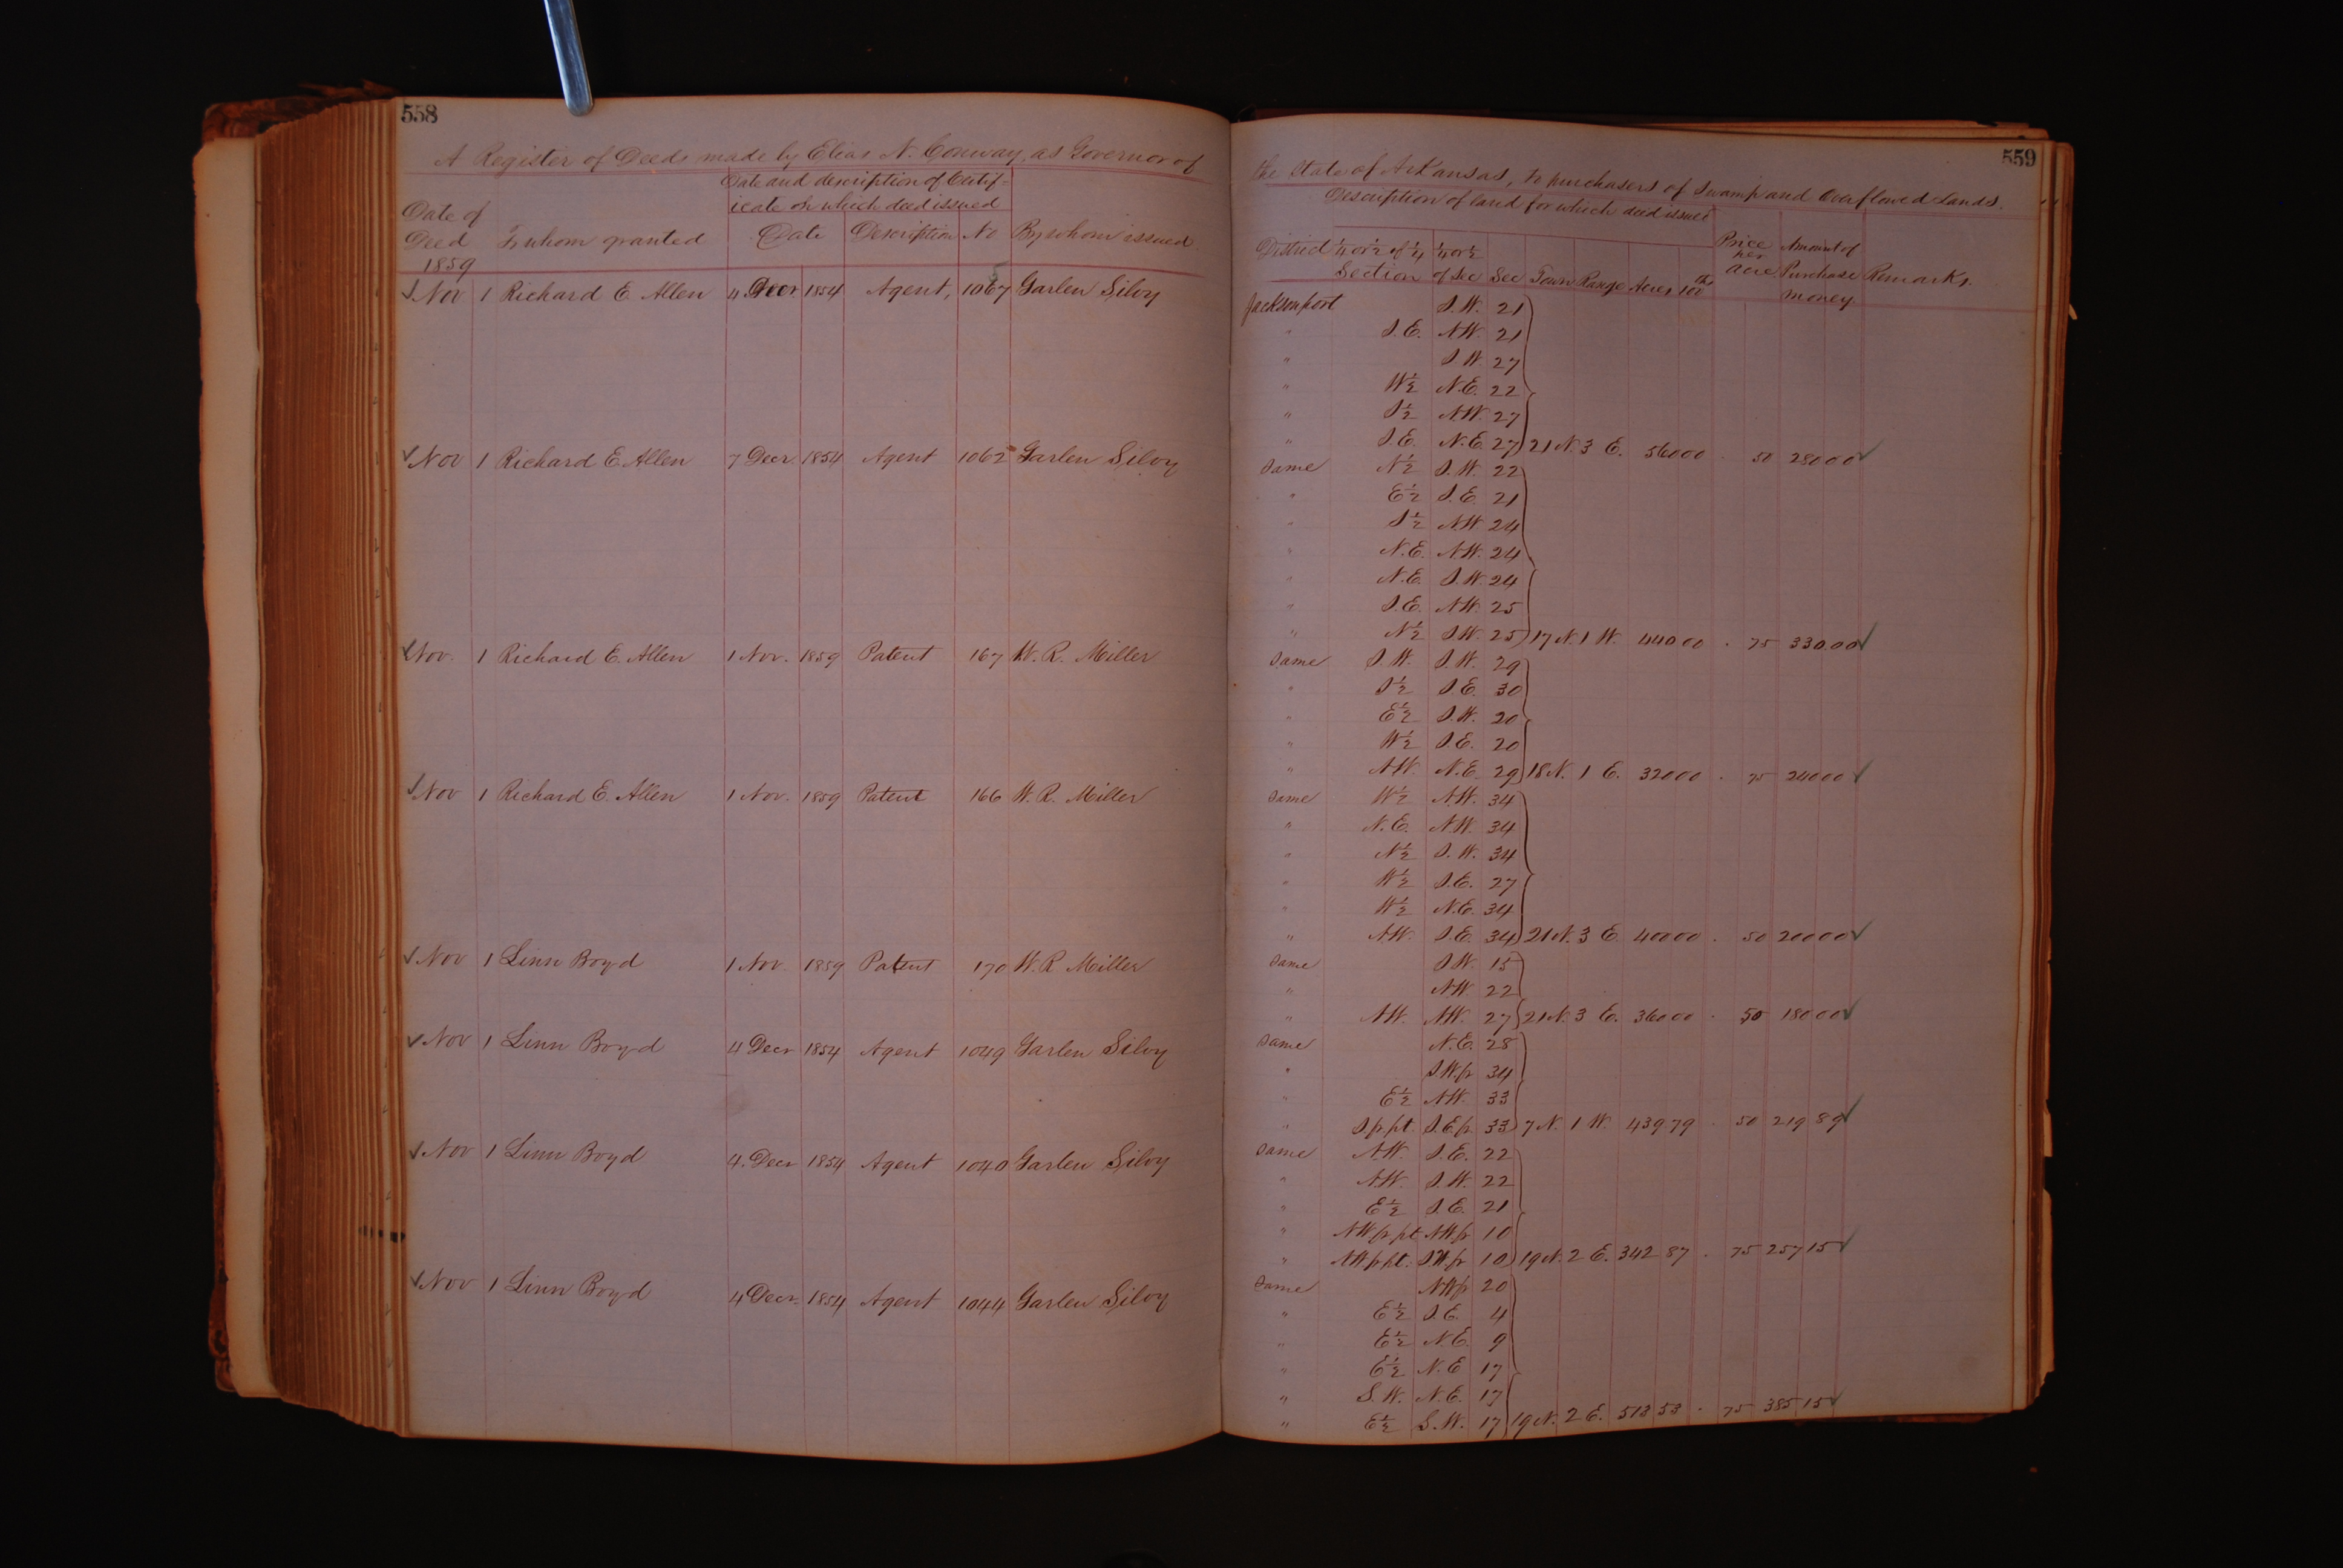 558
A Register of Deeds made by Elias N. Conway, as Governor of
Date and description of Certif-
icate on which deed issued
Date of
Deed To whom granted Date Description No By whom issued
1859
Nov 1 Richard E. Allen 4 Decr 1854 Agent, 1067 Garlen Silvy
5
Nov 1 Richard E. Allen 7 Decr 1854 Agent 1062 Garlen Silvy
Nov. 1 Richard E. Allen 1 Nov. 1859 Patent 167 W. R. Miller
Nov 1 Richard E. Allen 1 Nov. 1859 Patent 166 W. R. Miller
Nov 1 Linn Boyd 1 Nov. 1859 Patent 170 W. R. Miller
Nov 1 Linn Boyd 4 Decr 1854 Agent 1049 Garlen Silvy
Nov 1 Linn Boyd 4. Decr 1854 Agent 1040 Garlen Silvy
Nov 1 Linn Boyd 4 Decr. 1854 Agent 1044 Garlen Silvy
559
the State of Arkansas, to purchasers of Swamp and Overflowed Lands.
Description of land for which deed issued
District ¼ or ½ of ¼ ¼ or ½ Price Amount of
Section of Sec Sec Town Range Acres 100ths per acre Purchase Remarks.
money.
Jacksonport S.W. 21
" S.E. N.W. 21
" S.W. 27
" W½ N.E. 22
" S½ N.W. 27
" S.E. N.E. 27 21 N. 3 E. 560 00 . 50 280 00
Same N½ S.W. 22
" E½ S.E. 21
" S½ N.W. 24
" N.E. N.W. 24
" N.E. S.W. 24
" S.E. N.W. 25
" N½ S.W. 25 17 N. 1 W. 440 00 . 75 330 00
Same S.W. S.W. 29
" S½ S.E. 30
" E½ S.W. 20
" W½ S.E. 20
" N.W. N.E. 29 18 N. 1 E. 320 00 . 75 240 00
Same W½ N.W. 34
" N.E. N.W. 34
" N½ S.W. 34
" W½ S.E. 27
" W½ N.E. 34
" N.W. S.E. 34 21 N. 3 E 400 00 . 50 200 00
Same S.W. 15
" N.W. 22
" N.W. N.W. 27 21 N. 3 E. 360 00 . 50 180 00
Same N.E. 28
" S.W.fr 34
" E½ N.W. 33
" S fr pt. S.E.fr. 33 7 N. 1 W. 439 79 . 50 219 89
Same N.W. S.E. 22
" N.W. S.W. 22
" E½ S.E. 21
" N.W fr pt N.W fr 10
" N.W fr pt. S.W.fr 10 19 N. 2 E. 342 87 . 75 257 15
Same N.W fr 20
" E½ S.E. 4
" E½ N.E. 9
" E½ N.E 17
" S.W. N.E. 17
" E½ S.W. 17 19 N. 2 E. 513 53 . 75 385 15